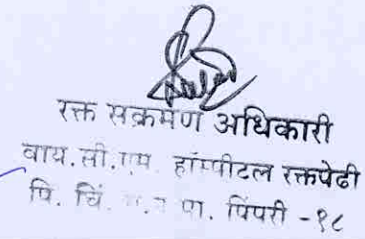 रक्त सक्रमण अधिकारी
वाय.सी.एम. हॉस्पीटल रक्तपेढी
पि. चिं. पा. पिंपरी -१८